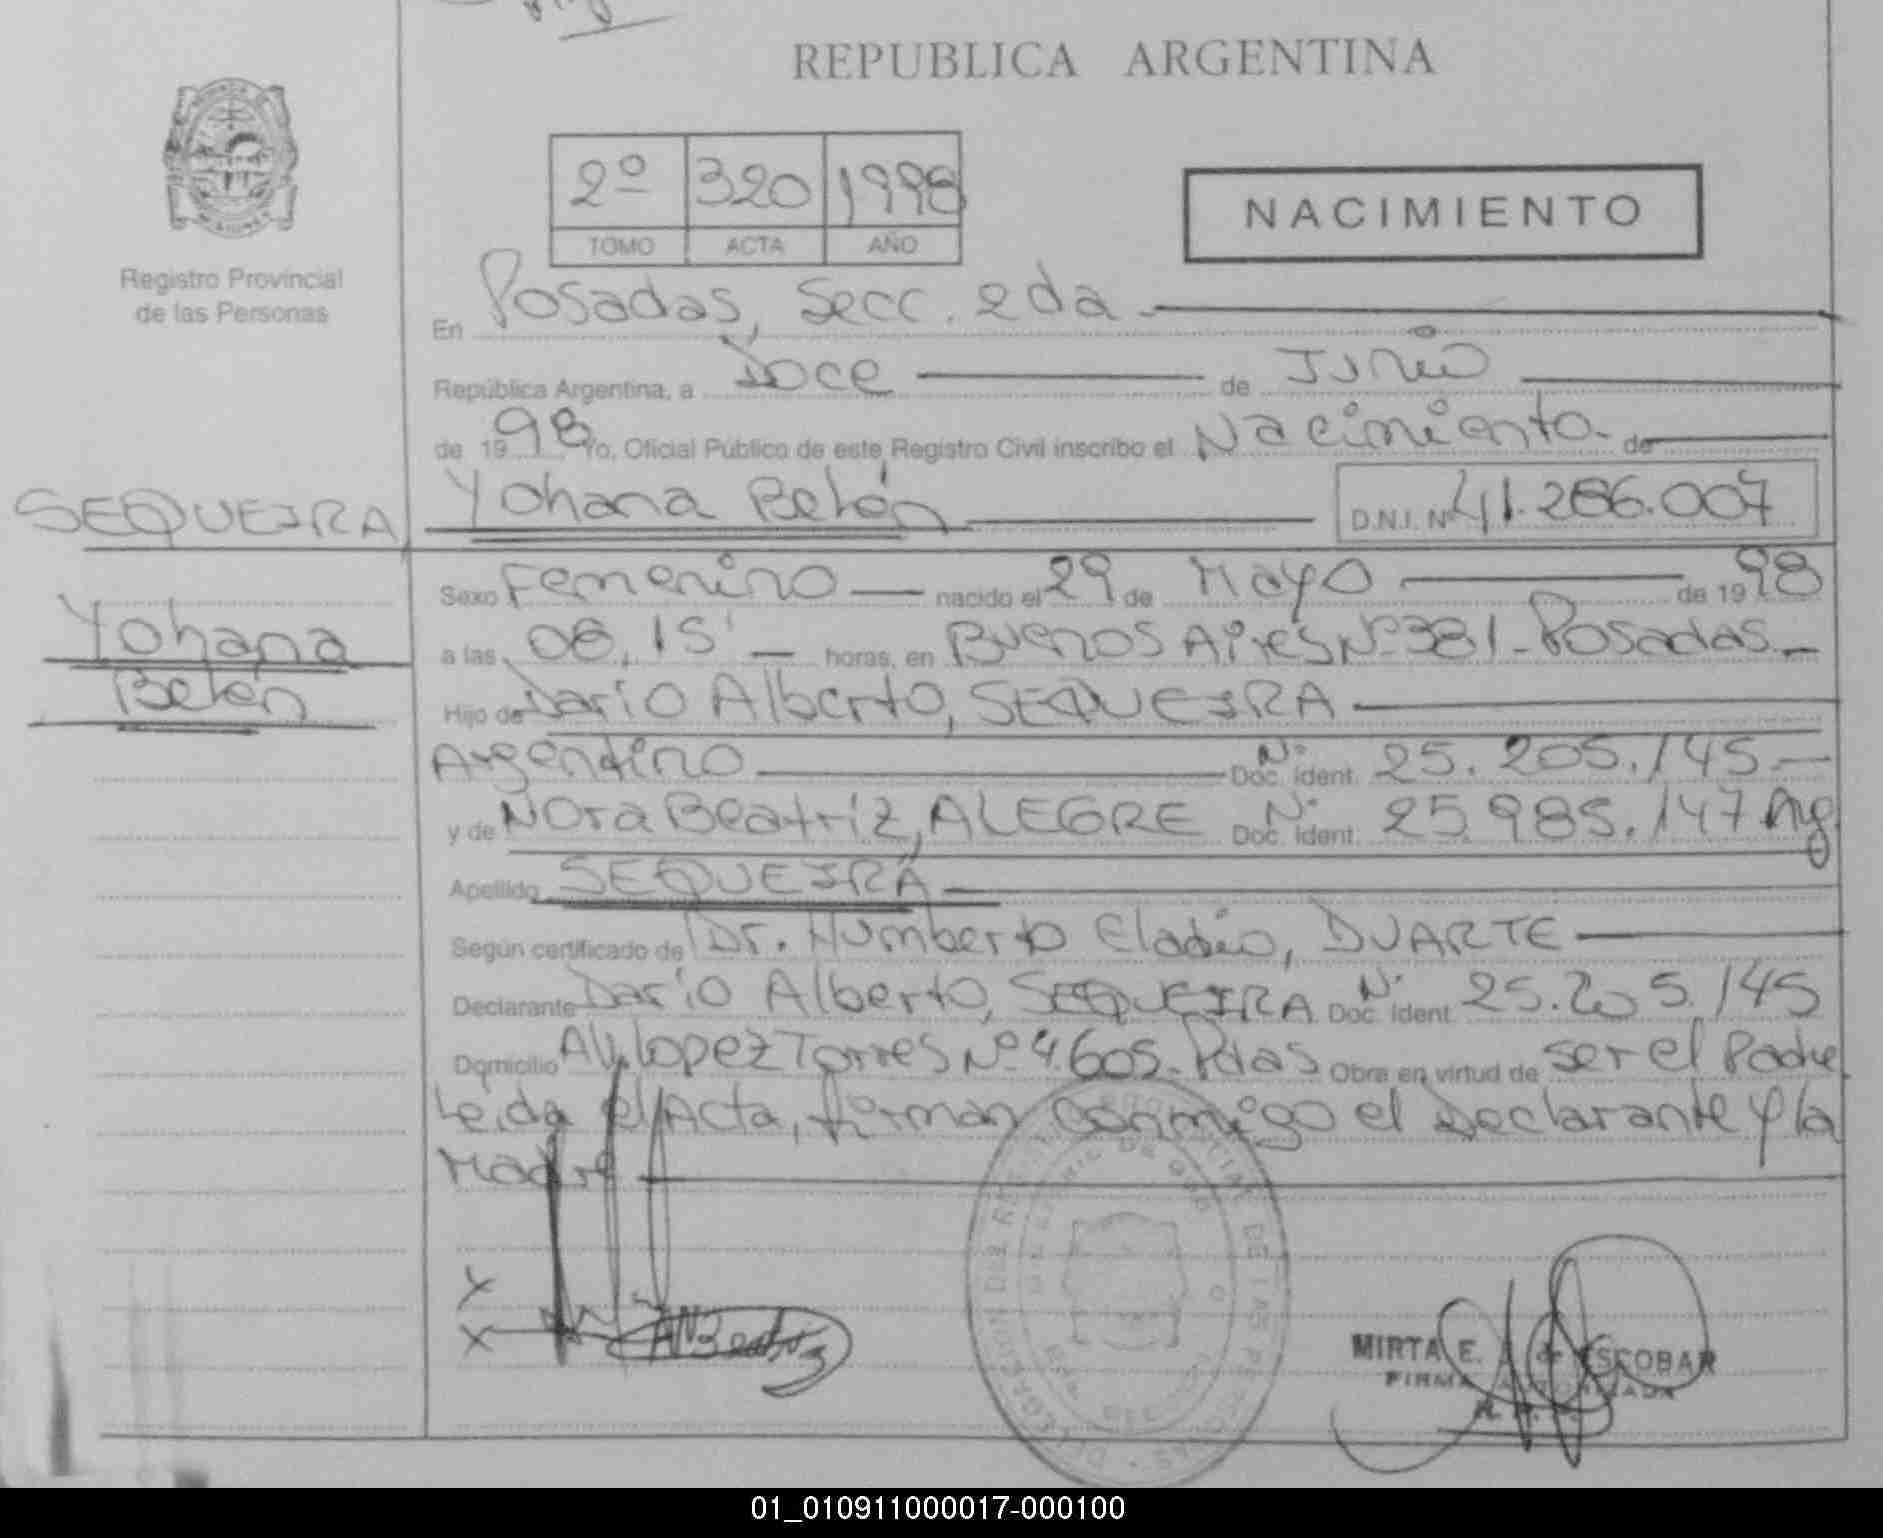 REPUBLICA ARGENTINA
2º 320 1998
TOMO ACTA AÑO
NACIMIENTO
Registro Provincial
de las Personas
En Posadas, Secc. 2da
República Argentina, a Doce de Junio
de 1998 Yo, Oficial Público de este Registro Civil inscribo el Nacimiento de
SEQUEIRA
Yohana Belén D.N.I. Nº 41.286.007
Yohana
Belén
Sexo Femenino nacido el 29 de Mayo de 1998
a las 08,15' horas, en Buenos Aires Nº 381 - Posadas
Hijo de Dario Alberto, SEQUEIRA
Argentino Nº Doc. Ident. 25.205.145
y de Nora Beatriz, ALEGRE Nº Doc. Ident. 25.985.147 Arg
Apellido SEQUEIRA
Según certificado de Dr. Humberto Eladio, DUARTE
Declarante Dario Alberto, SEQUEIRA Nº Doc. Ident. 25.205.145
Domicilio Av. Lopez Torres Nº 4.605. Pdas Obra en virtud de ser el Padre
Leida el Acta, firman conmigo el Declarante y la
Madre
X
X
MIRTA E. de ESCOBAR
FIRMA AUTORIZADA
01_010911000017-000100